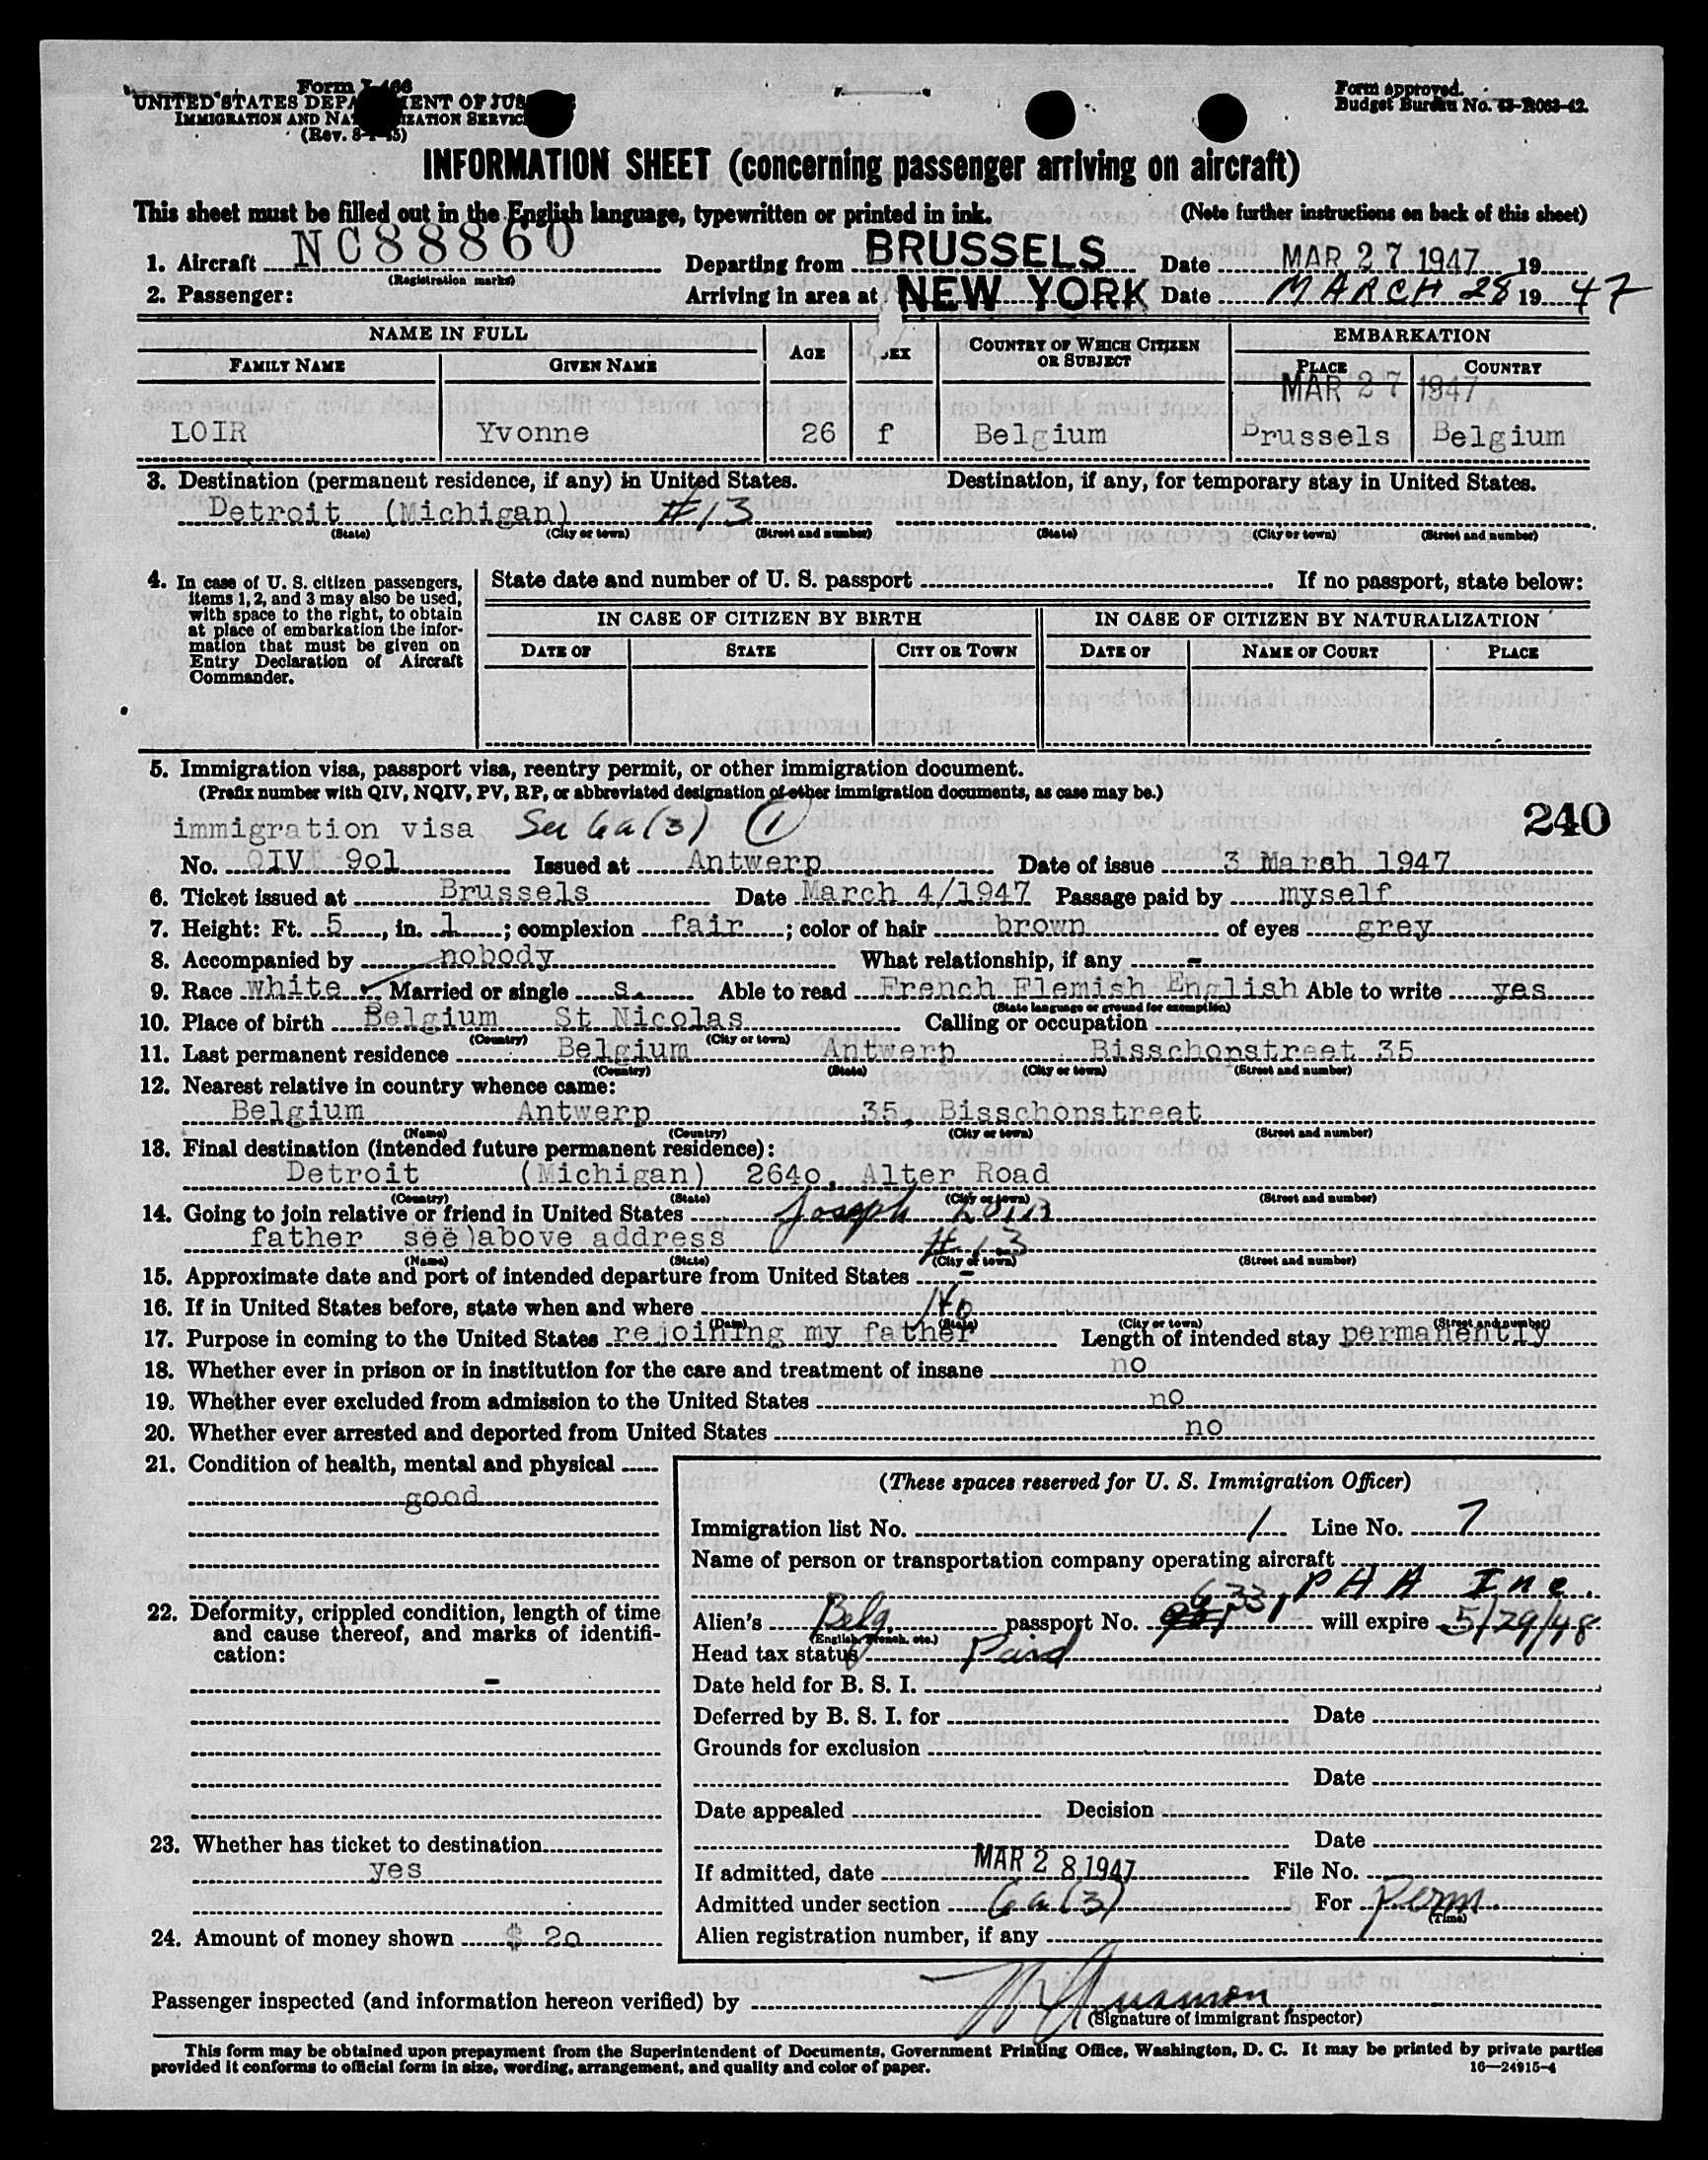 Form I-466
UNITED STATES DEPARTMENT OF JUSTICE
IMMIGRATION AND NATURALIZATION SERVICE
(Rev. 8-1-45)
Form approved.
Budget Bureau No. 43-R063-42.
INFORMATION SHEET (concerning passenger arriving on aircraft)
This sheet must be filled out in the English language, typewritten or printed in ink. (Note further instructions on back of this sheet)
1. Aircraft NC88860 Departing from BRUSSELS Date MAR 27 1947 19
(Registration marks)
2. Passenger: Arriving in area at NEW YORK Date MARCH 28 19 47
NAME IN FULL AGE SEX COUNTRY OF WHICH CITIZEN OR SUBJECT EMBARKATION
FAMILY NAME GIVEN NAME PLACE COUNTRY
MAR 27 1947
LOIR Yvonne 26 f Belgium Brussels Belgium
3. Destination (permanent residence, if any) in United States. Destination, if any, for temporary stay in United States.
Detroit (Michigan) #13
(State) (City or town) (Street and number) (State) (City or town) (Street and number)
4. In case of U. S. citizen passengers, items 1, 2, and 3 may also be used, with space to the right, to obtain at place of embarkation the information that must be given on Entry Declaration of Aircraft Commander.
State date and number of U. S. passport If no passport, state below:
IN CASE OF CITIZEN BY BIRTH IN CASE OF CITIZEN BY NATURALIZATION
DATE OF STATE CITY OR TOWN DATE OF NAME OF COURT PLACE
5. Immigration visa, passport visa, reentry permit, or other immigration document.
(Prefix number with QIV, NQIV, PV, RP, or abbreviated designation of other immigration documents, as case may be.)
240
immigration visa Sec 6a(3) 1
No. QIV 9o1 Issued at Antwerp Date of issue 3 March 1947
6. Ticket issued at Brussels Date March 4/1947 Passage paid by myself
7. Height: Ft. 5, in. 1; complexion fair; color of hair brown of eyes grey
8. Accompanied by nobody What relationship, if any -
9. Race white Married or single s. Able to read French Flemish English Able to write yes
(State language or ground for exemption)
10. Place of birth Belgium St Nicolas Calling or occupation
(Country) (City or town)
11. Last permanent residence Belgium Antwerp Bisschopstreet 35
(Country) (State) (City or town) (Street and number)
12. Nearest relative in country whence came:
Belgium Antwerp 35, Bisschopstreet
(Name) (Country) (City or town) (Street and number)
13. Final destination (intended future permanent residence):
Detroit (Michigan) 264o, Alter Road
(Country) (State) (City or town) (Street and number)
14. Going to join relative or friend in United States Joseph Loir
father see)above address # 13
(Name) (State) (City or town) (Street and number)
15. Approximate date and port of intended departure from United States -
16. If in United States before, state when and where No
(Date) (State) (City or town) (Street and number)
17. Purpose in coming to the United States rejoining my father Length of intended stay permanently
18. Whether ever in prison or in institution for the care and treatment of insane no
19. Whether ever excluded from admission to the United States no
20. Whether ever arrested and deported from United States no
21. Condition of health, mental and physical
good
22. Deformity, crippled condition, length of time and cause thereof, and marks of identification:
-
23. Whether has ticket to destination
yes
24. Amount of money shown $ 2o
(These spaces reserved for U. S. Immigration Officer)
Immigration list No. 1 Line No. 7
Name of person or transportation company operating aircraft
PAA Inc.
Alien's Belg. passport No. 6331 will expire 5/29/48
(English, French, etc.)
Head tax status Paid
Date held for B. S. I.
Deferred by B. S. I. for Date
Grounds for exclusion
Date
Date appealed Decision
Date
If admitted, date MAR 28 1947 File No.
Admitted under section 6a(3) For Perm.
(Time)
Alien registration number, if any
Passenger inspected (and information hereon verified) by
(Signature of immigrant inspector)
This form may be obtained upon prepayment from the Superintendent of Documents, Government Printing Office, Washington, D. C. It may be printed by private parties
provided it conforms to official form in size, wording, arrangement, and quality and color of paper. 16—24915-4